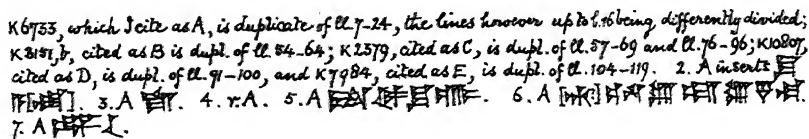 K6733, which I cite as A, is duplicate of ll. 7-24, the lines however up to l. 16 being differently divided;
K3151,b, cited as B is dupl. of ll. 54-64; K2379, cited as C, is dupl. of ll. 57-69 and ll. 76-96; K10807,
cited as D, is dupl. of ll. 91-100, and K7984, cited as E, is dupl. of ll. 104-119. 2. A inserts
3. A 4. r. A. 5. A 6. A
7. A